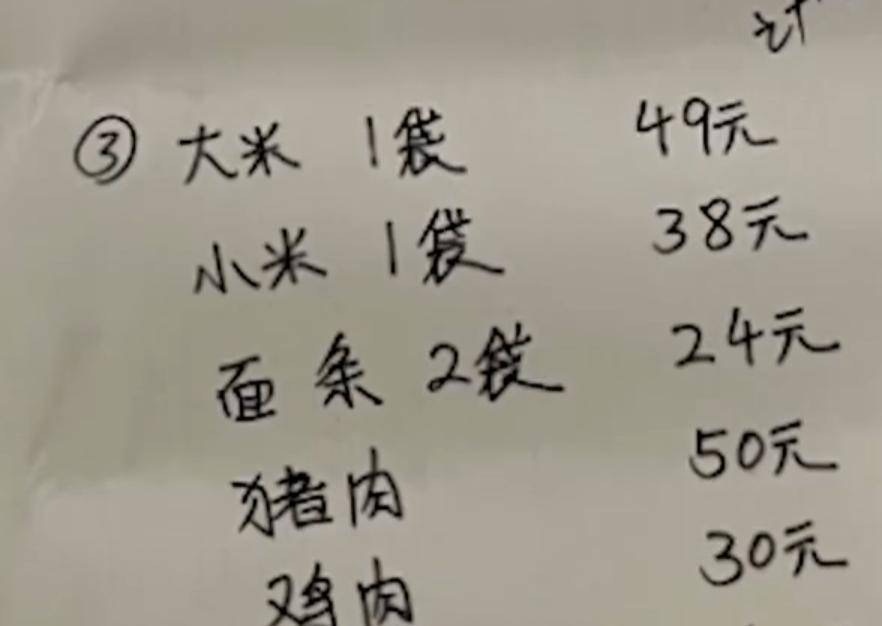 ③ 大米 1袋 49元
小米 1袋 38元
面条 2袋 24元
猪肉 50元
鸡肉 30元